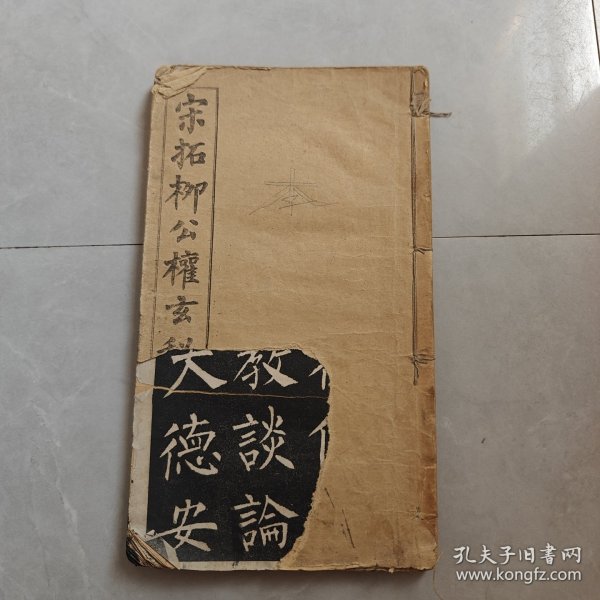 宋拓柳公權玄秘
教談論
大德安
孔夫子旧书网
www.kongfz.com